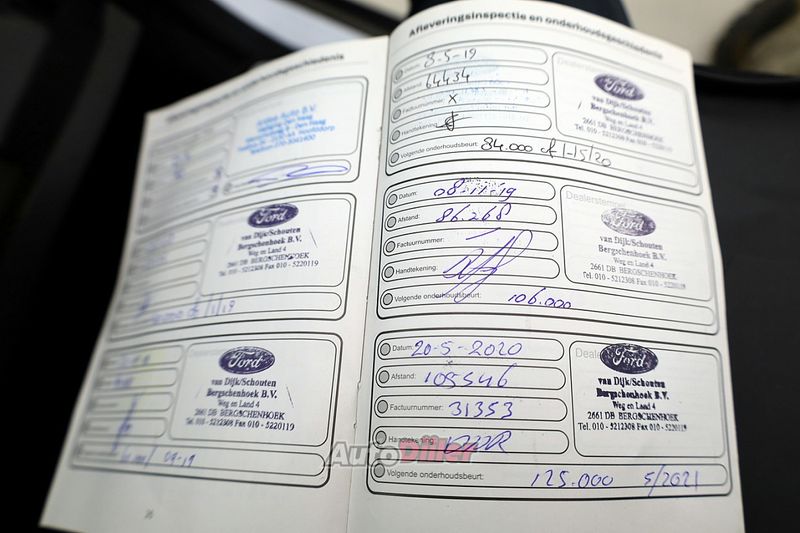 Afleveringsinspectie en onderhoudsgeschiedenis
Auto B.V.
Den Haag
Hoofddorp
Ford
van Dijk/Schouten
Bergschenhoek B.V.
Weg en Land 4
2661 DB BERGSCHENHOEK
Tel. 010 - 5212308 Fax 010 - 5220119
/1/19
Ford
van Dijk/Schouten
Bergschenhoek B.V.
Weg en Land 4
2661 DB BERGSCHENHOEK
Tel. 010 - 5212308 Fax 010 - 5220119
09-19
Datum: 8-5-19
Afstand: 64434
Factuurnummer: X
Handtekening:
Volgende onderhoudsbeurt: 84.000 of 1-15/20
Dealerstempel
Ford
van Dijk/Schouten
Bergschenhoek B.V.
Weg en Land 4
2661 DB BERGSCHENHOEK
Tel. 010 - 5212308 Fax 010 - 5220119
Datum: 08-11-19
Afstand: 86.268
Factuurnummer:
Handtekening:
Volgende onderhoudsbeurt: 106.000
Dealerstempel
Ford
van Dijk/Schouten
Bergschenhoek B.V.
Weg en Land 4
2661 DB BERGSCHENHOEK
Tel. 010 - 5212308 Fax 010 - 5220119
Datum: 20-5-2020
Afstand: 105546
Factuurnummer: 31353
Handtekening:
Volgende onderhoudsbeurt: 125.000 5/2021
Ford
van Dijk/Schouten
Bergschenhoek B.V.
Weg en Land 4
2661 DB BERGSCHENHOEK
Tel. 010 - 5212308 Fax 010 - 5220119
AutoDiler